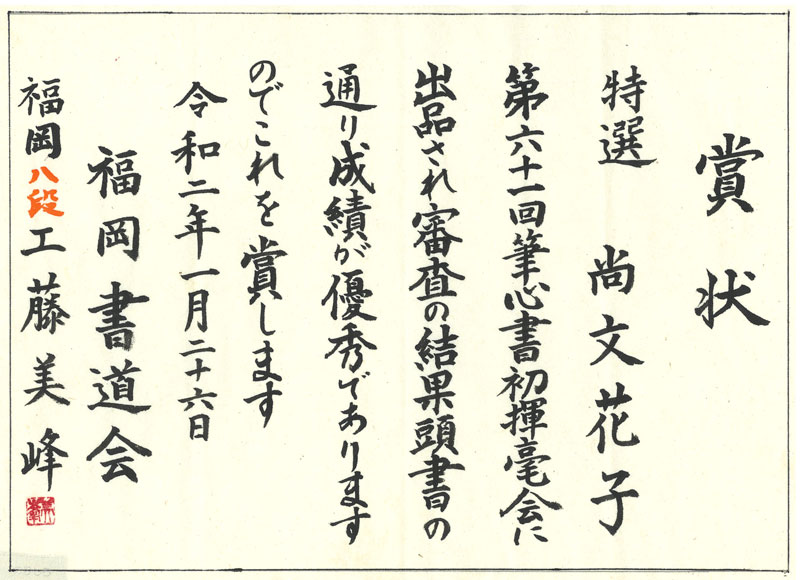 賞状
特選 尚文花子
第六十一回筆心書初揮毫会に
出品され審査の結果頭書の
通り成績が優秀であります
のでこれを賞します
令和二年一月二十六日
福岡書道会
福岡八段工藤美峰